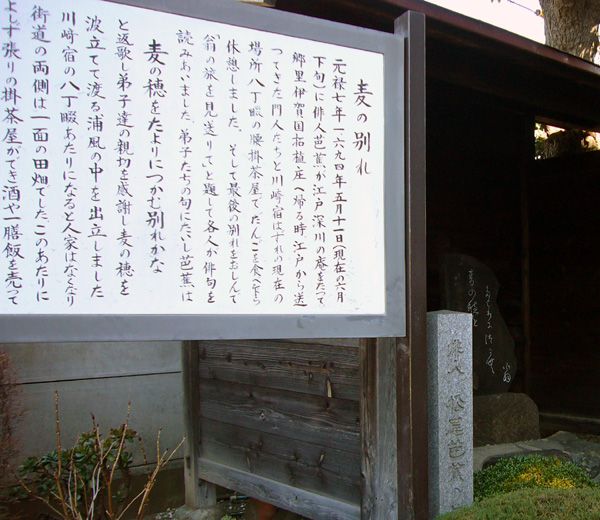 麦の別れ
元禄七年(一六九四年)五月十一日(現在の六月
下旬)に俳人芭蕉が江戸深川の庵をたって
郷里伊賀国柘植庄へ帰る時、江戸から送
ってきた門人たちと川崎宿はずれの現在の
場所八丁畷の腰掛茶屋で、だんごを食べながら
休憩しました。そして最後の別れをおしんで
「翁の旅を見送りて」と題して各人が俳句を
読みあいました。弟子たちの句にたいし芭蕉は
麦の穂をたよりにつかむ別れかな
と返歌し弟子達の親切を感謝し麦の穂を
波立てて渡る浦風の中を出立しました
川崎宿の八丁畷あたりになると人家はなくなり
街道の両側は一面の田畑でした。このあたりに
よしず張りの掛茶屋ができ酒や一膳飯を売って
俳人 松尾芭蕉の
麦の穂を